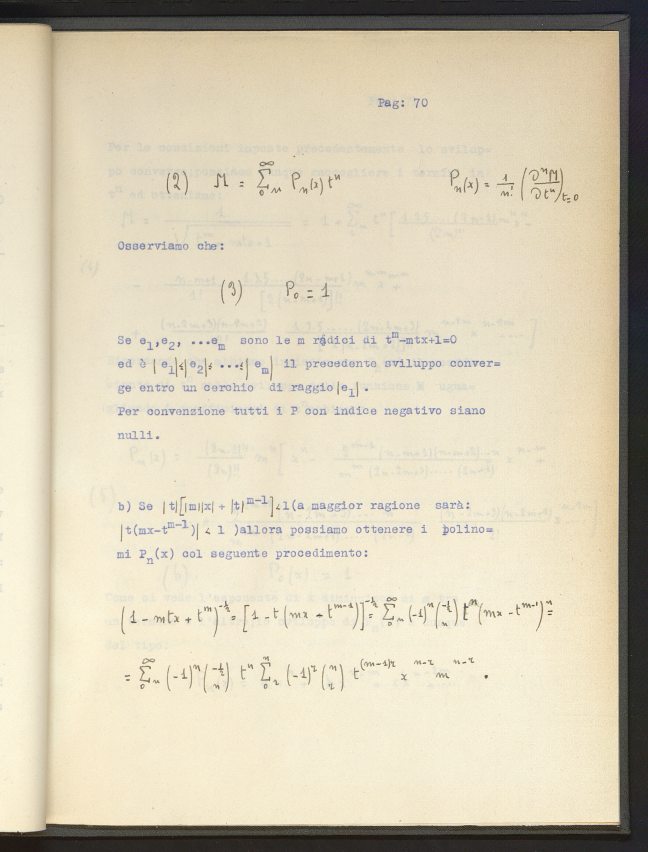 Pag: 70
(2) M = ∑₀^∞ₙ Pₙ(x) tⁿ Pₙ(x) = 1/n! (∂ⁿM/∂tⁿ)ₜ₌₀
Osserviamo che:
(3) P₀ = 1
Se e₁,e₂, ...eₘ sono le m radici di tᵐ-mtx+1=0
ed è |e₁|≤|e₂|≤ ...≤|eₘ| il precedente sviluppo conver=
ge entro un cerchio di raggio|e₁|.
Per convenzione tutti i P con indice negativo siano
nulli.
b) Se |t|[|m||x| + |t|ᵐ⁻¹]<1(a maggior ragione sarà:
|t(mx-tᵐ⁻¹)| < 1 )allora possiamo ottenere i polino=
mi Pₙ(x) col seguente procedimento:
(1 - mtx + tᵐ)^(-1/2) = [1 - t(mx - tᵐ⁻¹)]^(-1/2) = ∑₀^∞ₙ (-1)ⁿ (-1/2 n) tⁿ (mx - tᵐ⁻¹)ⁿ =
= ∑₀^∞ₙ (-1)ⁿ (-1/2 n) tⁿ ∑₀ⁿᵣ (-1)ʳ (n r) t^((m-1)r) xⁿ⁻ʳ mⁿ⁻ʳ .